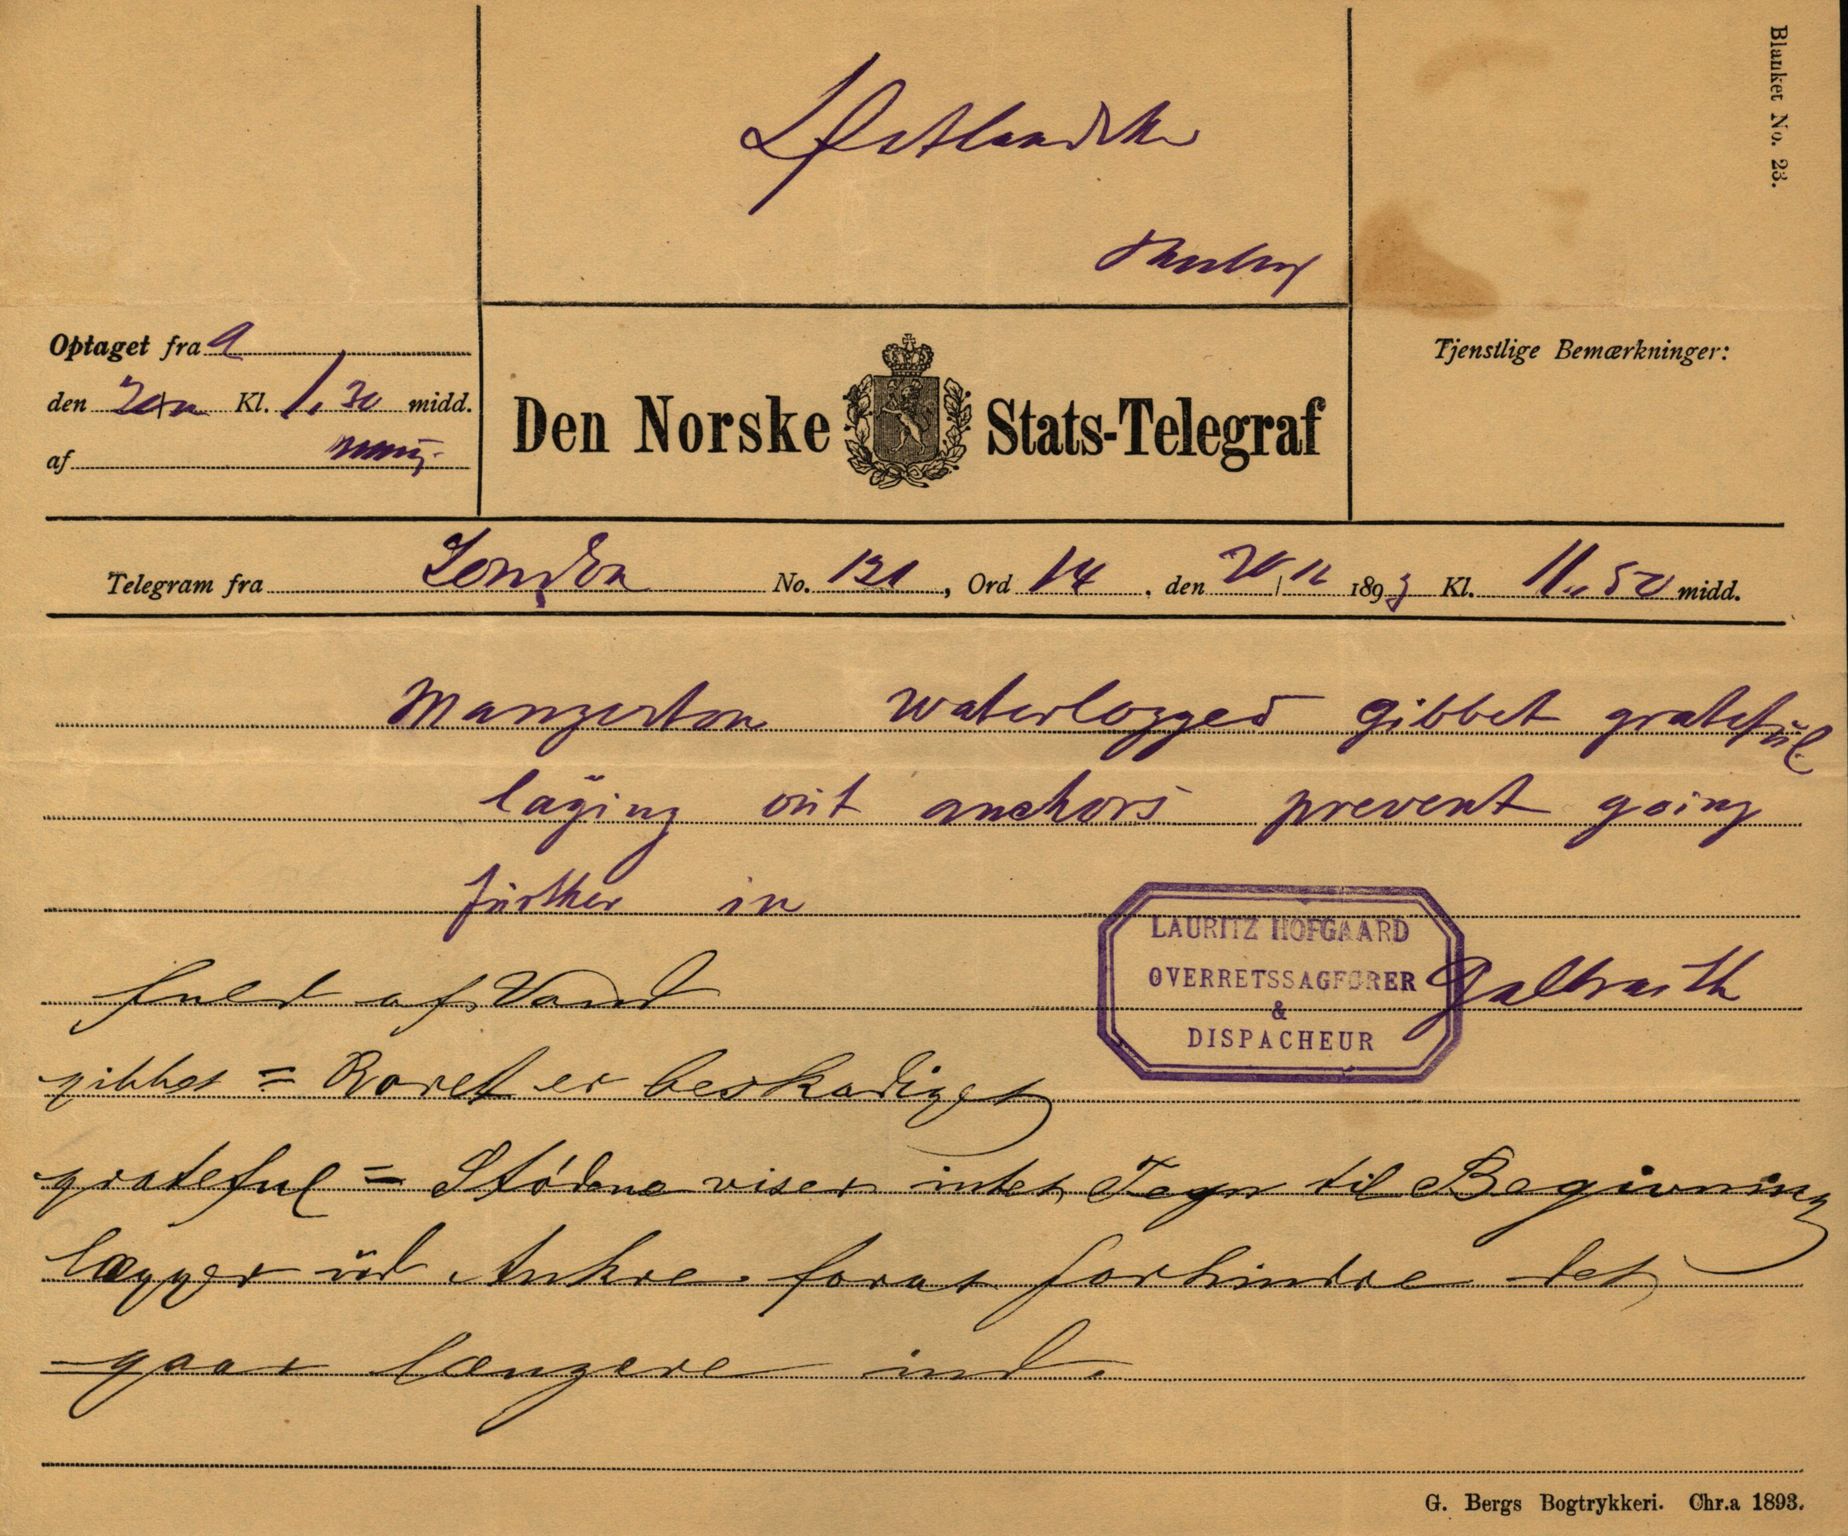 Blanket No. 23.
Optaget fra a
den 20/11 Kl. 1.30 midd.
af
Den Norske Stats-Telegraf
Tjenstlige Bemærkninger:
Telegram fra London No. 131, Ord 14, den 20/11 1893 Kl. 11.50 midd.
Manzerton waterlogged gibbet grateful
laying out anchors prevent going
further in
Galbraith
LAURITZ HOFGAARD
OVERRETSSAGFØRER
&
DISPACHEUR
fuld af Vand
gibbet = Roret er beskadiget
grateful = Stødene viser intet Tegn til Begivning
lægger ud Ankre forat forhindre det
gaar længere ind.
G. Bergs Bogtrykkeri. Chr.a 1893.